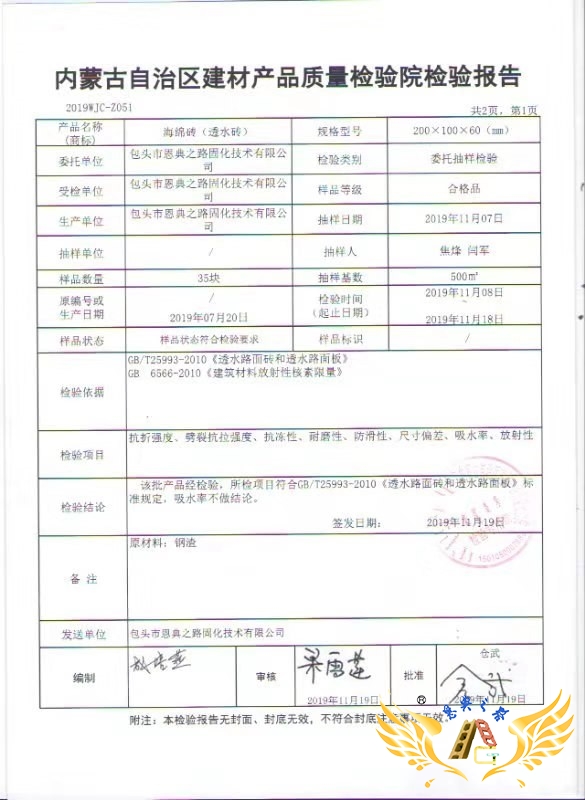 内蒙古自治区建材产品质量检验院检验报告
2019WJC-Z051 共2页，第1页
产品名称
(商标) 海绵砖（透水砖） 规格型号 200×100×60（mm）
委托单位 包头市恩典之路固化技术有限公
司 检验类别 委托抽样检验
受检单位 包头市恩典之路固化技术有限公
司 样品等级 合格品
生产单位 包头市恩典之路固化技术有限公
司 抽样日期 2019年11月07日
抽样单位 / 抽样人 焦烽 闫军
样品数量 35块 抽样基数 500㎡
原编号或
生产日期 /
2019年07月20日 检验时间
(起止日期) 2019年11月08日
2019年11月18日
样品状态 样品状态符合检验要求 样品标识 /
检验依据 GB/T25993-2010《透水路面砖和透水路面板》
GB 6566-2010《建筑材料放射性核素限量》
检验项目 抗折强度、劈裂抗拉强度、抗冻性、耐磨性、防滑性、尺寸偏差、吸水率、放射性
检验结论 该批产品经检验，所检项目符合GB/T25993-2010《透水路面砖和透水路面板》标
准规定，吸水率不做结论。
签发日期： 2019年11月19日
备 注 原材料：钢渣
发送单位 包头市恩典之路固化技术有限公司
编制 审核 2019年11月19日 批准 仓武
2019年11月19日
附注：本检验报告无封面、封底无效，不符合封底注意事项无效。
®
恩典之路